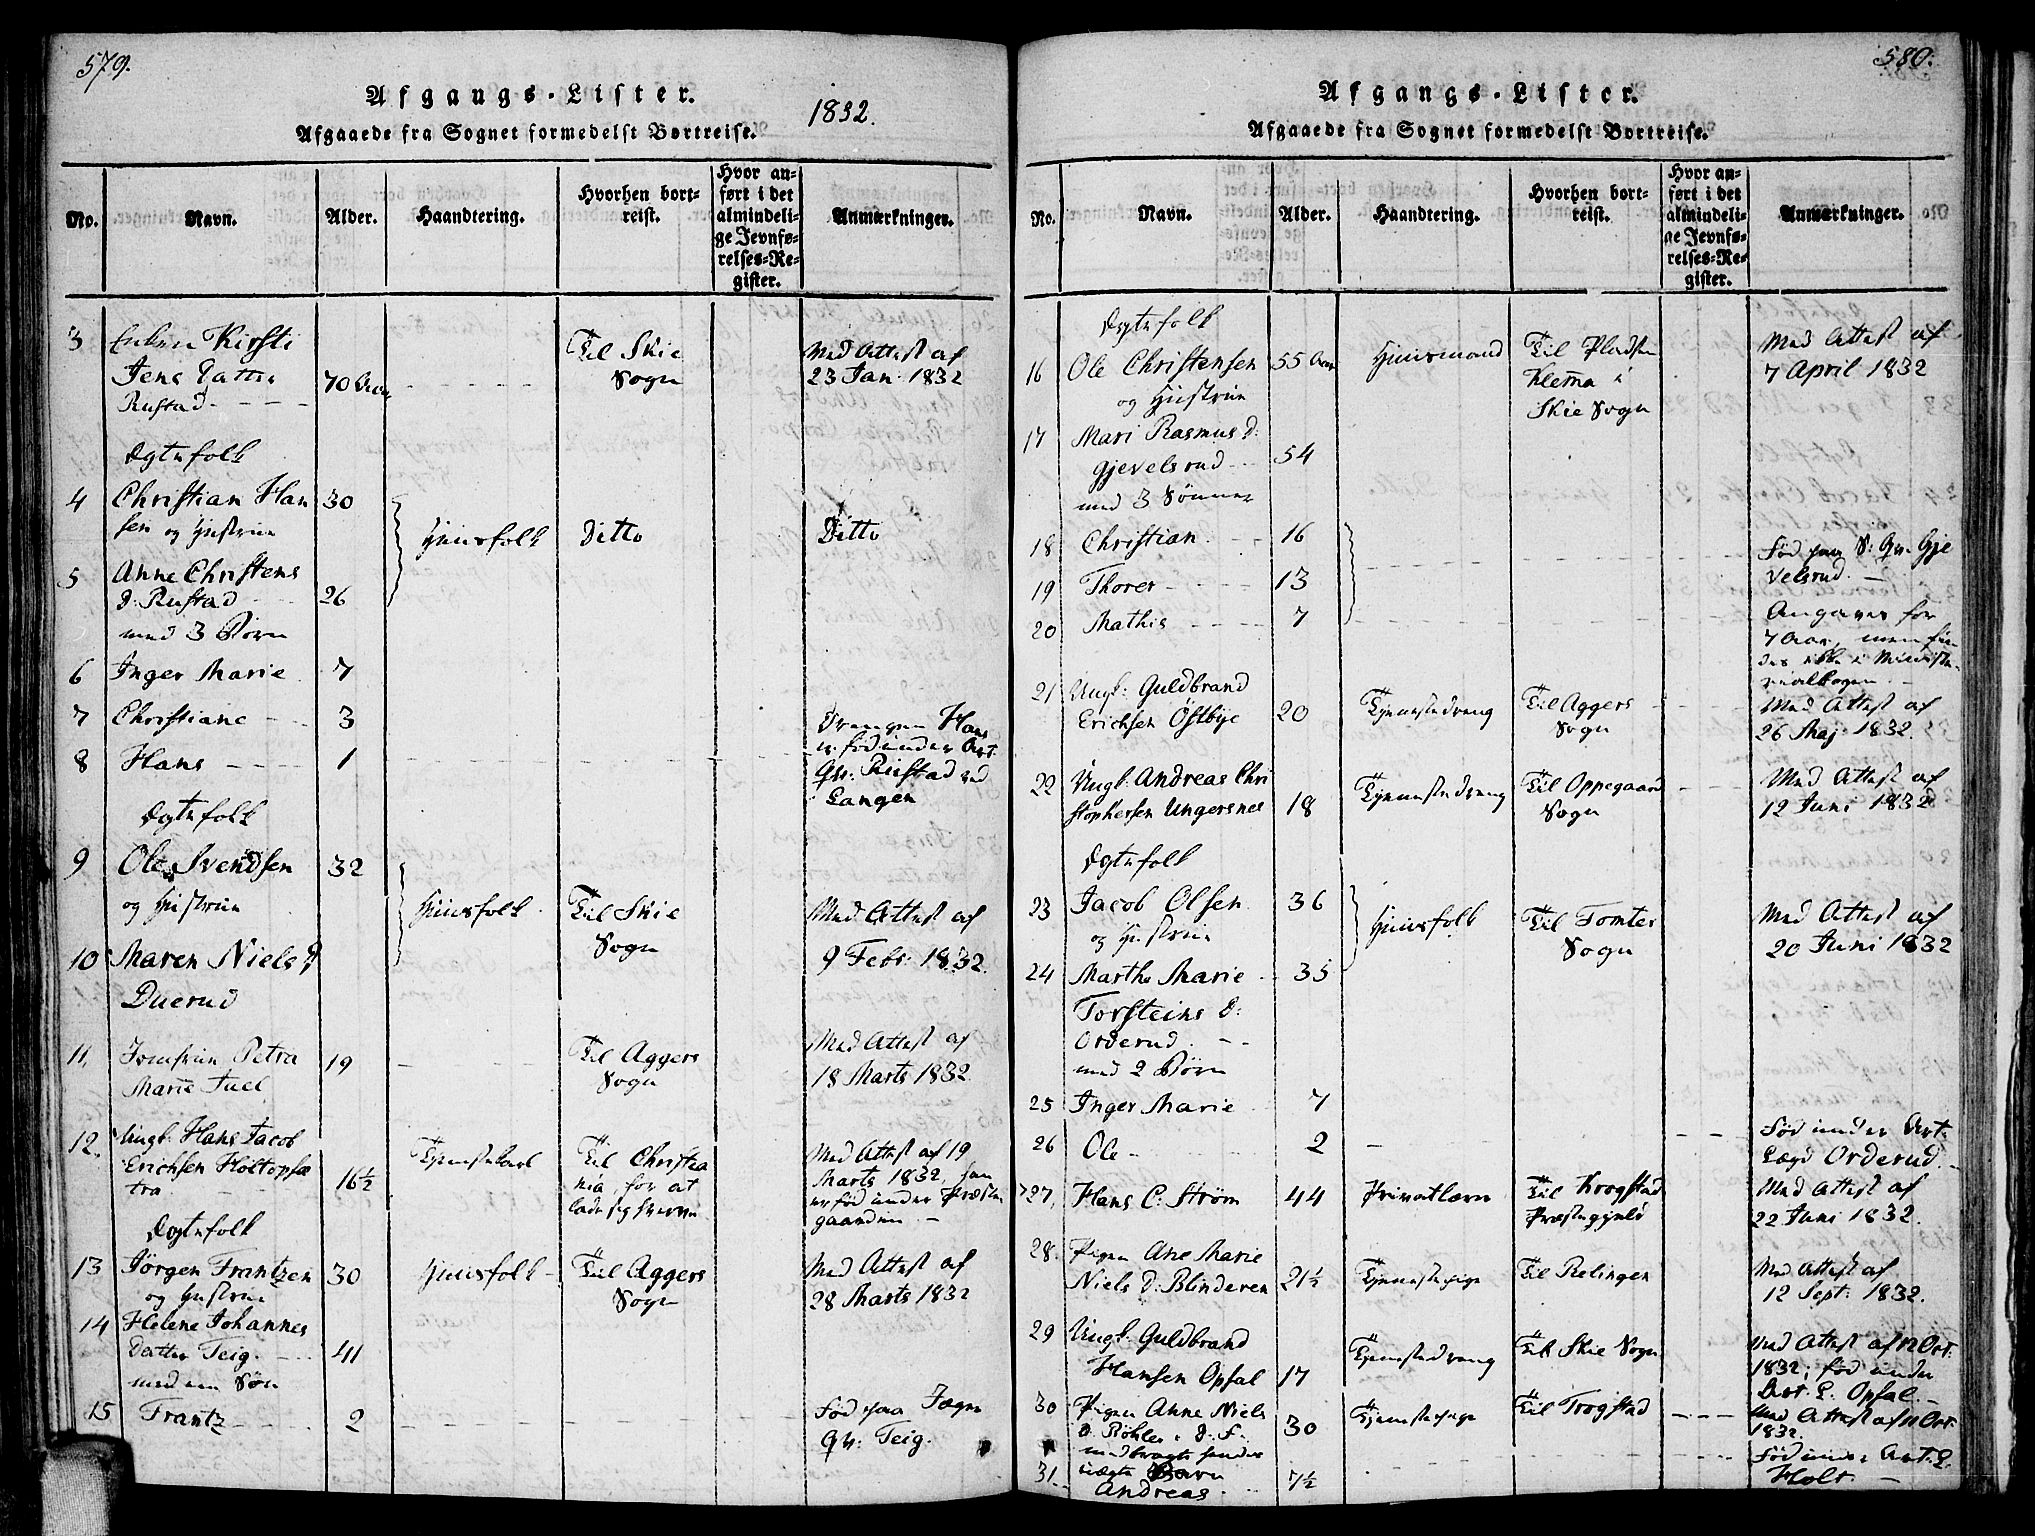 579.
Afgangs-Lister.
1832.
Afgaaede fra Sognet formedelst Bortreise.
No. Navn. Alder. Haandtering. Hvorhen bortreist. Hvor anført i det almindelige Jevnførelses-Register. Anmærkninger.
3 Enken Kirsti Til Skie Med Attest af
Jens Datter 70 Aar Sogn 23 Jan. 1832
Rustad
Ægtefolk
4 Christian Han 30
sen og Hustrue Huusfolk Ditto Ditto
5 Anne Christens
D: Rustad 26
med 3 Børn
6 Inger Marie 7
7 Christiane 3 Drengen Hans
8 Hans 1 er fød under Art.
Gr: Rustad ved
Langen
Ægtefolk
9 Ole Svendsen 32
og Hustrue Huusfolk Til Skie Med Attest af
10 Maren Niels D: Sogn 9 Febr. 1832.
Duerud
11, Jomfrue Petra 19 Til Aggers Med Attest af
Marie Juel. Sogn 18 Marts 1832
12. Ungk: Hans Jacob Tjenestekarl Til Christia Med Attest af 19
Erichsen Holtopsæ 16½ nia, for at Marts 1832, han
tra lade sig hverve er fød under Præste
gaarden
Ægtefolk
13 Jørgen Frantzen 30 Huusfolk Til Aggers Med Attest af
og Hustrue Sogn 28 Marts 1832
14 Helene Johannes
Datter Teig. 41
med een Søn
15 Frantz 2 Fød paa
Gr: Teig.
580.
Afgangs-Lister.
Afgaaede fra Sognet formedelst Bortreise.
No. Navn. Alder. Haandtering. Hvorhen bortreist. Hvor anført i det almindelige Jevnførelses-Register. Anmærkninger.
Ægtefolk
16 Ole Christensen 55 Aar Huusmand Til Pladsen Med Attest af
og Hustrue Klemma i 7 April 1832
Skie Sogn
17 Mari Rasmus D:
Gjevelsrud 54
med 3 Sønner
18 Christian 16 Fød paa S: Gr. Gje
19 Thorer 13 velsrud.
20 Mathis 7 Angives for
7 Aar, men fin
des ikke i Ministe
rialbogen.
21 Ungk: Guldbrand Tjenestedreng Til Aggers Med Attest af
Erichsen Østbye 20 Sogn 26 Maj 1832.
22 Ungk: Andreas Chri Tjenestedreng Til Oppegaard Med Attest af
stophersen Ungersnes 18 Sogn 12 Juni 1832
Ægtefolk
23 Jacob Olsen 36 Huusfolk Til Tomter Med Attest af
og Hustrue Sogn 20 Juni 1832
24 Marthe Marie 35
Torsteins D:
Orderud.
med 2 Børn
25 Inger Marie 7
26 Ole 2 Fød under Art.
Lægd Orderud.
27, Hans C: Strøm 44 Privatlærer Til Krogstad Med Attest af
Præstegjeld 22 Juni 1832.
28. Pigen Ane Marie Med Attest af
Niels D: Blinderen 21½ Tjenestepige Til Relingen 12 Sept: 1832.
29 Ungk: Guldbrand Tjenestedreng Til Skie Sogn Med Attest af 12 Oct:
Hansen Opsal 17 1832; fød under
Art. L. Opsal.
30 Pigen Anne Niels 30 Tjenestepige Til Trogstad Med Attest af 12 Oct:
D. Røhler 1832.
medbragte hendes Fød under Art. L.
31. uægte Barn 7½ Holt.
Andreas.